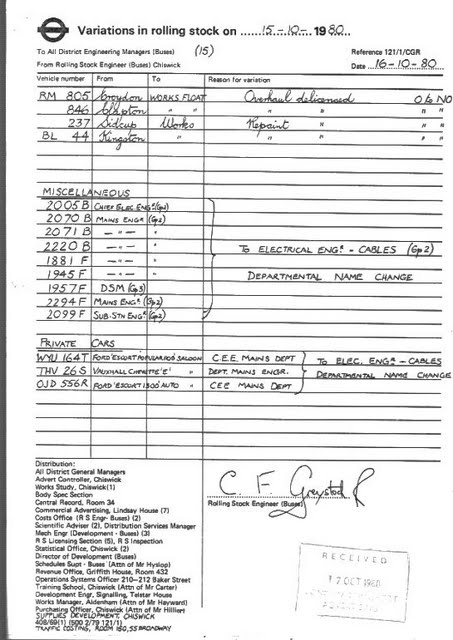 Variations in rolling stock on 15-10-1980
To All District Engineering Managers (Buses) (15) Reference 121/1/CGR
From Rolling Stock Engineer (Buses) Chiswick Date 16-10-80
Vehicle number From To Reason for variation
RM 805 Croydon WORKS FLOAT Overhaul delicensed O to NO
846 Clapton " " " " " "
237 Sidcup Works Repaint " " "
BL 44 Kingston " " " " "
MISCELLANEOUS
2005 B CHIEF ELEC ENGR (Gp2)
2070 B MAINS ENGR (Gp2)
2071 B — " — "
2220 B — " — " TO ELECTRICAL ENGR. - CABLES (Gp2)
1881 F — " — "
1945 F — " — " DEPARTMENTAL NAME CHANGE
1957 F DSM (Gp3)
2294 F MAINS ENGR (Gp2)
2099 F SUB-STN ENGR (Gp2)
PRIVATE CARS
WYU 164T FORD 'ESCORT POPULAR 1300' SALOON C.E.E. MAINS DEPT TO ELEC. ENGR - CABLES
THV 26 S VAUXHALL CHEVETTE 'E' " DEPT. MAINS ENGR. DEPARTMENTAL NAME CHANGE
OJD 556R FORD 'ESCORT 1300' AUTO " CEE MAINS DEPT
Distribution:
All District General Managers
Advert Controller, Chiswick
Works Study, Chiswick(1)
Body Spec Section
Central Record, Room 34
Commercial Advertising, Lindsay House (7)
Costs Office (R S Engr- Buses) (2)
Scientific Adviser (2), Distribution Services Manager
Mech Engr (Development - Buses) (3)
R S Licensing Section (5), R S Inspection
Statistical Office, Chiswick (2)
Director of Development (Buses)
Schedules Supt - Buses (Attn of Mr Hyslop)
Revenue Office, Griffith House, Room 432
Operations Systems Officer 210-212 Baker Street
Training School, Chiswick (Attn of Mr Carter)
Development Engr, Signalling, Telstar House
Works Manager, Aldenham (Attn of Mr Hayward)
Purchasing Officer, Chiswick (Attn of Mr Hillier)
SUPPLIES DEVELOPMENT, CHISWICK
408/69(1) (500 2/79 121/1)
TRAFFIC COSTING, ROOM 150, 55 BROADWAY
C. F. Greystod R
Rolling Stock Engineer (Buses)
RECEIVED
17 OCT 1980